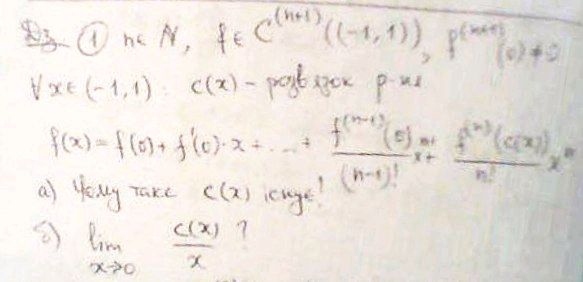 Дз ① n∈N, f∈C^{(n+1)}((-1,1)), f^{(n+1)}(0)≠0
∀x∈(-1,1): c(x) - розв'язок р-ня
f(x)=f(0)+f'(0)·x+...+ \frac{f^{(n-1)}(0)}{(n-1)!} x^{n-1}+ \frac{f^{(n)}(c(x))}{n!} x^n
а) Чому таке c(x) існує!
б) lim_{x→0} \frac{c(x)}{x} ?